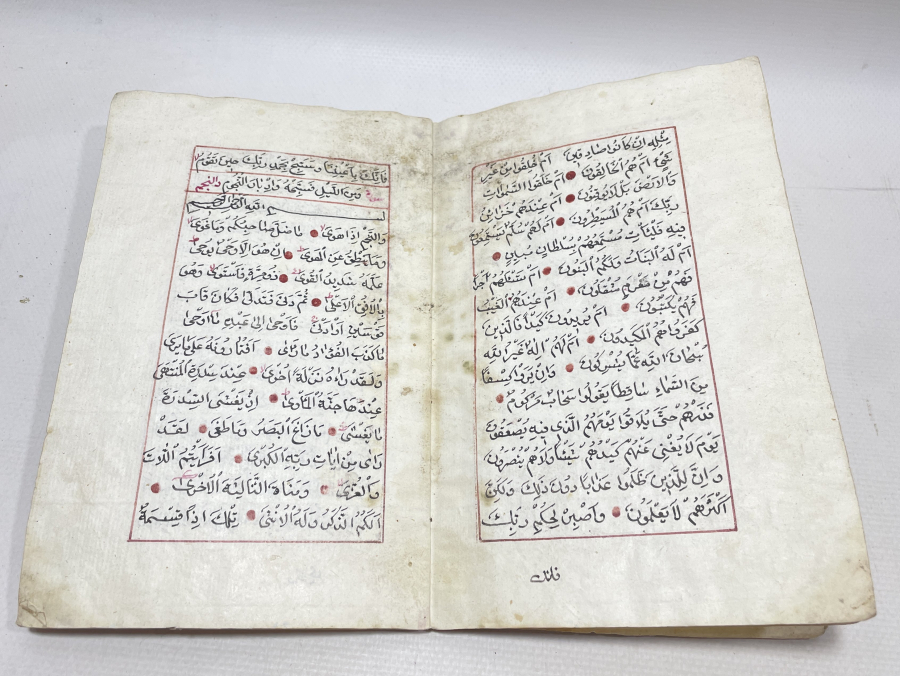 مِثْلِهِ اِنْ كَانُوا صَادِقِينَ اَمْ خُلِقُوا مِنْ غَيْرِ
شَيْءٍ اَمْ هُمُ الْخَالِقُونَ اَمْ خَلَقُوا السَّمٰوَاتِ
وَالْاَرْضَ بَلْ لَا يُوقِنُونَ اَمْ عِنْدَهُمْ خَزَائِنُ
رَبِّكَ اَمْ هُمُ الْمُسَيْطِرُونَ اَمْ لَهُمْ سُلَّمٌ يَسْتَمِعُونَ
فِيهِ فَلْيَأْتِ مُسْتَمِعُهُمْ بِسُلْطَانٍ مُبِينٍ
اَمْ لَهُ الْبَنَاتُ وَلَكُمُ الْبَنُونَ اَمْ تَسْئَلُهُمْ اَجْرًا
فَهُمْ مِنْ مَغْرَمٍ مُثْقَلُونَ اَمْ عِنْدَهُمُ الْغَيْبُ
فَهُمْ يَكْتُبُونَ اَمْ يُرِيدُونَ كَيْدًا فَالَّذِينَ
كَفَرُوا هُمُ الْمَكِيدُونَ اَمْ لَهُمْ اِلٰهٌ غَيْرُ اللّٰهِ
سُبْحَانَ اللّٰهِ عَمَّا يُشْرِكُونَ وَاِنْ يَرَوْا كِسْفًا
مِنَ السَّمَاءِ سَاقِطًا يَقُولُوا سَحَابٌ مَرْكُومٌ
فَذَرْهُمْ حَتّٰى يُلَاقُوا يَوْمَهُمُ الَّذِي فِيهِ يُصْعَقُونَ
يَوْمَ لَا يُغْنِي عَنْهُمْ كَيْدُهُمْ شَيْئًا وَلَا هُمْ يُنْصَرُونَ
وَاِنَّ لِلَّذِينَ ظَلَمُوا عَذَابًا دُونَ ذٰلِكَ وَلٰكِنَّ
اَكْثَرَهُمْ لَا يَعْلَمُونَ وَاصْبِرْ لِحُكْمِ رَبِّكَ
فانك
فَاِنَّكَ بِاَعْيُنِنَا وَسَبِّحْ بِحَمْدِ رَبِّكَ حِينَ تَقُومُ
وَمِنَ اللَّيْلِ فَسَبِّحْهُ وَاِدْبَارَ النُّجُومِ وَالنَّجْمِ
بسم الله الرحمن الرحيم
وَالنَّجْمِ اِذَا هَوٰى مَا ضَلَّ صَاحِبُكُمْ وَمَا غَوٰى
وَمَا يَنْطِقُ عَنِ الْهَوٰى اِنْ هُوَ اِلَّا وَحْيٌ يُوحٰى
عَلَّمَهُ شَدِيدُ الْقُوٰى ذُو مِرَّةٍ فَاسْتَوٰى وَهُوَ
بِالْاُفُقِ الْاَعْلٰى ثُمَّ دَنٰى فَتَدَلّٰى فَكَانَ قَابَ
قَوْسَيْنِ اَوْ اَدْنٰى فَاَوْحٰى اِلٰى عَبْدِهِ مَا اَوْحٰى
مَا كَذَبَ الْفُؤَادُ مَا رَاٰى اَفَتُمَارُونَهُ عَلٰى مَا يَرٰى
وَلَقَدْ رَاٰهُ نَزْلَةً اُخْرٰى عِنْدَ سِدْرَةِ الْمُنْتَهٰى
عِنْدَهَا جَنَّةُ الْمَأْوٰى اِذْ يَغْشَى السِّدْرَةَ
مَا يَغْشٰى مَا زَاغَ الْبَصَرُ وَمَا طَغٰى لَقَدْ
رَاٰى مِنْ اٰيَاتِ رَبِّهِ الْكُبْرٰى اَفَرَاَيْتُمُ اللَّاتَ
وَالْعُزّٰى وَمَنَاةَ الثَّالِثَةَ الْاُخْرٰى
اَلَكُمُ الذَّكَرُ وَلَهُ الْاُنْثٰى تِلْكَ اِذًا قِسْمَةٌ